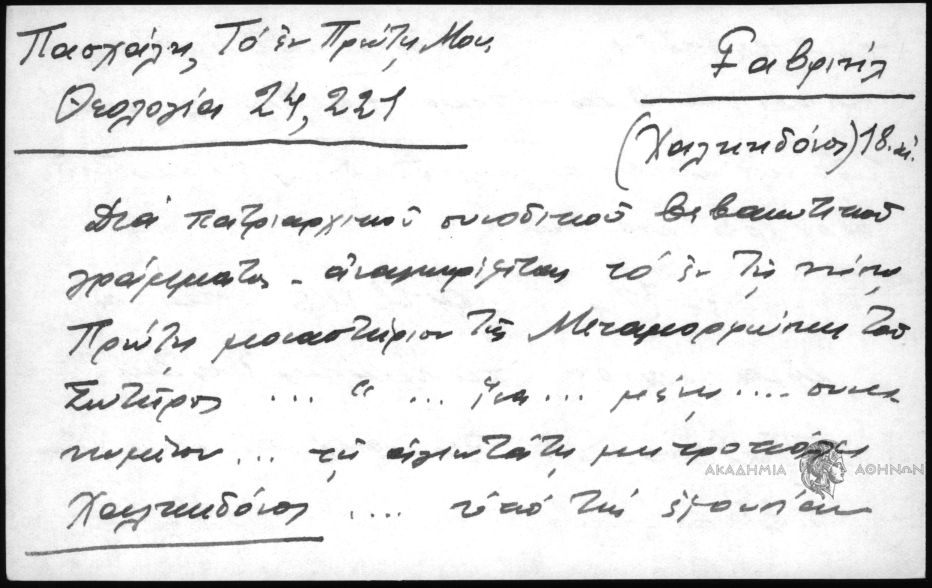 Πασχάλη, Τό ἐν Πρώτῃ Μον.
Θεολογία 24, 221
Γαβριήλ
(Χαλκηδόνος) 18. αἰ.
Διά πατριαρχικοῦ συνοδικοῦ βεβαιωτικοῦ
γράμματος - ἀναγνωρίζεται τό ἐν τῇ νήσῳ
Πρώτῃ μοναστήριον τῆς Μεταμορφώσεως τοῦ
Σωτῆρος ... " ... ἵνα ... μένῃ .... συνε
νωμένον ... τῇ ἁγιωτάτῃ μητροπόλει
Χαλκηδόνος .... ὑπό τήν ἐξουσίαν
ΑΚΑΔΗΜΙΑ ΑΘΗΝΩΝ